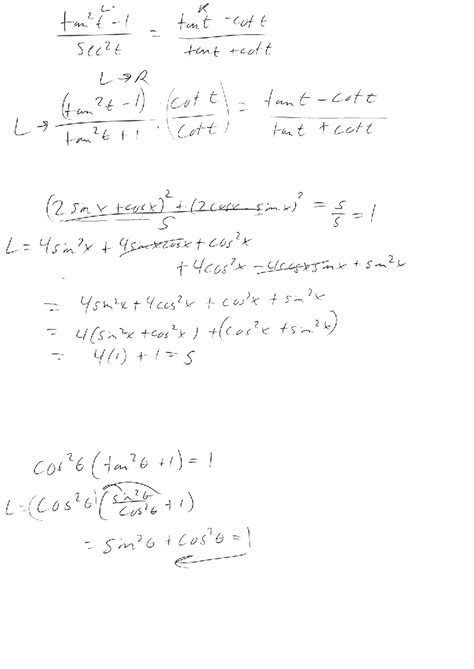 L R
(tan²t - 1)/(sec²t) = (tan t - cot t)/(tan t + cot t)
L → R
L → (tan²t - 1)/(tan²t + 1) · (cot t/cot t) = (tan t - cot t)/(tan t + cot t)
((2 sin x + cos x)² + (2 cos x - sin x)²)/5 = 5/5 = 1
L = 4 sin²x + 4 sin x cos x + cos²x
+ 4 cos²x - 4 cos x sin x + sin²x
= 4 sin²x + 4 cos²x + cos²x + sin²x
= 4(sin²x + cos²x) + (cos²x + sin²x)
= 4(1) + 1 = 5
cos²θ (tan²θ + 1) = 1
L = (cos²θ)(sin²θ/cos²θ + 1)
= sin²θ + cos²θ = 1